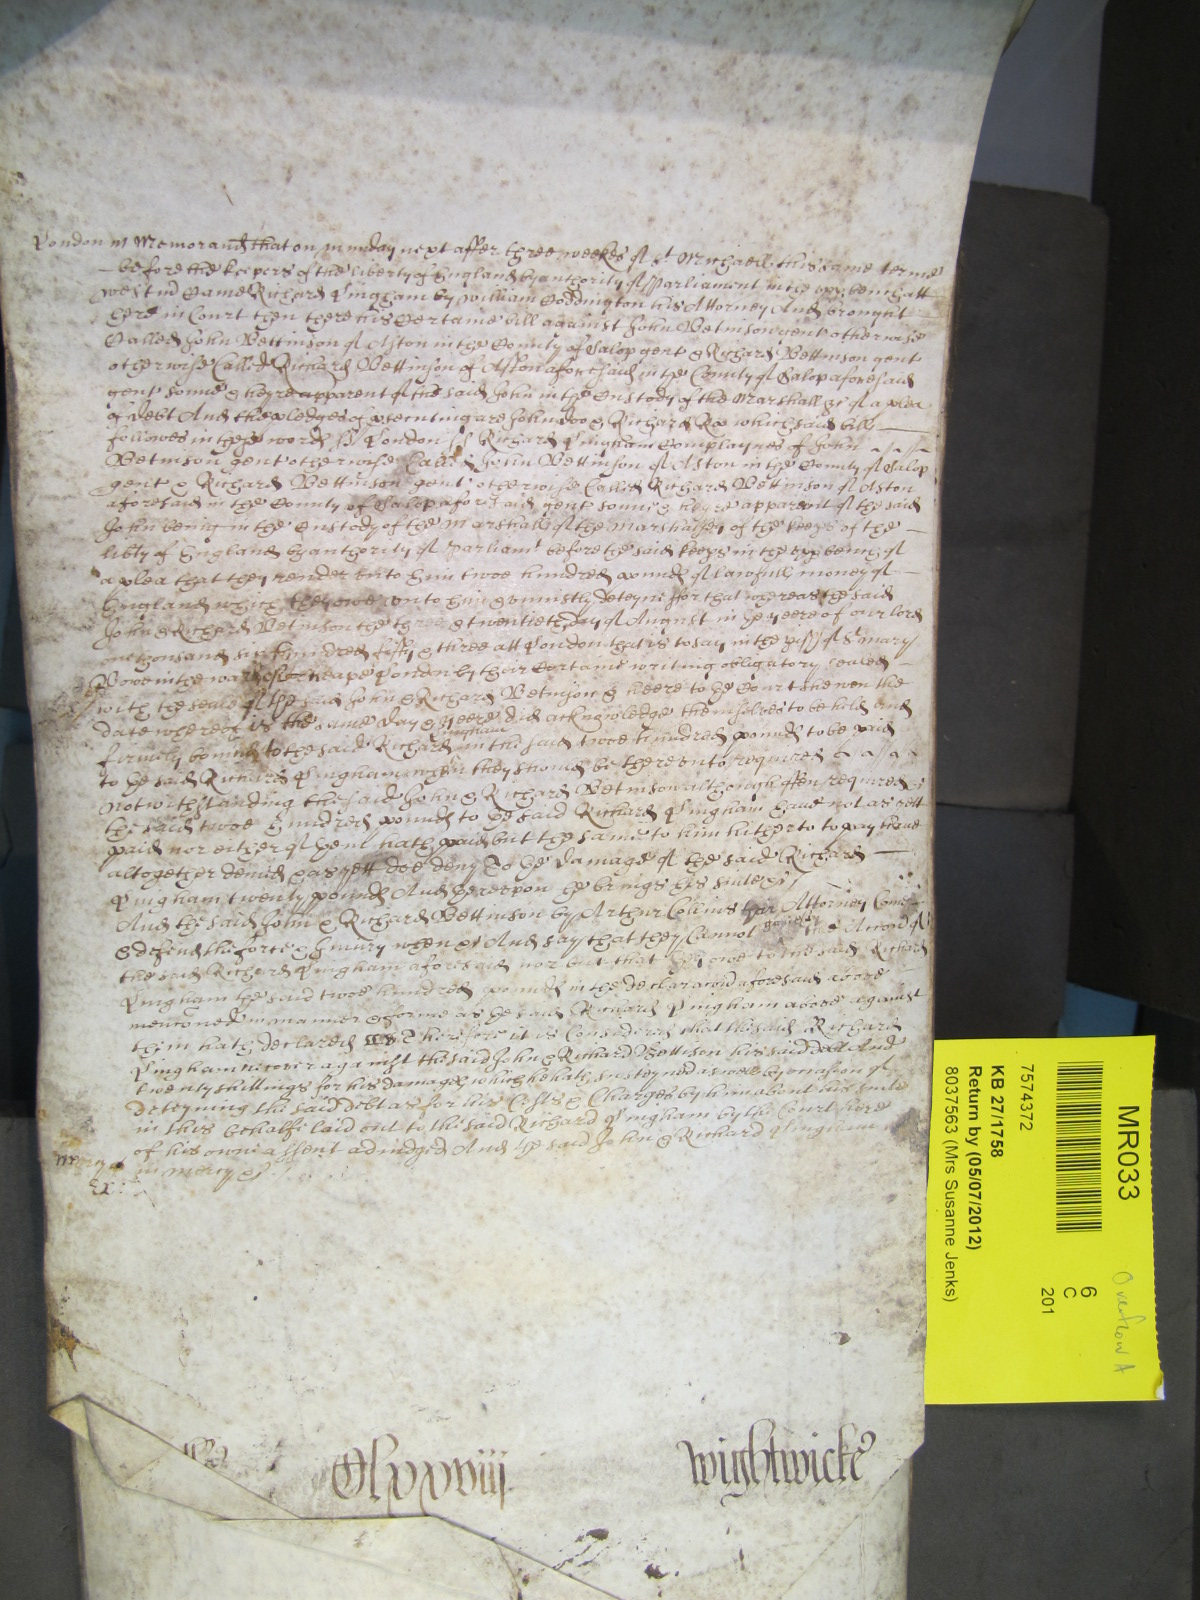 London ss Memorand that on munday next after three weekes of St Michaell this same terme
before the keepers of the liberty of England by authority of Parliament in the upp bench att
westmr Came Richard Lingham by William Coddington his Attorney And brought
here in Court then there his Certaine bill against John Betinson gent otherwise
Called John Bettinson of Aston in the County of Salop gent & Richard Bettinson gent
otherwise Called Richard Bettinson of Aston aforesaid in the County of Salop aforesaid
gent sonne & heyre apparent of the said John in the Custody of the Marshall &c of a plea
of debt And the pledges of prosecuting are John Doo & Richard Roo which said bill
followes in these words ss London ss Richard Lingham Complaynes of John
Betinson gent otherwise Called John Bettinson of Aston in the County of Salop
gent & Richard Bettinson gent otherwise Called Richard Bettinson of Aston
aforesaid in the County of Salop aforesaid gent sonne & heyre apparent of the said
John being in the Custody of the Marshall of the Marshalsey of the keeps of the
libty of England by authority of Parliamt before the said keeps in the upp bench of
a plea that they render unto him twoe hundred pounds of lawfull money of
England which they owe unto him & uniustly deteyne for that whereas the said
John & Richard Betinson the three & twentieth day of August in the yeere of our lord
one thousand six hundred fifty & three att London that is to say in the pish of St Mary
Bowe in the warde of Cheape London by their Certaine writing obligatory sealed
with the seales of the said John & Richard Betinson & heere to the Court shewen the
date whereof is the same day & yeere did acknowledge themselves to be held and
firmely bound to the said Richard Lingham in the said twoe hundred pounds to be paid
to the said Richard Lingham when they should be thereunto required
notwithstanding the said John & Richard Betinson although often required &c
the said twoe hundred pounds to the said Richard Lingham have not as yett
paid nor either of them hath paid but the same to him hitherto to pay have
altogether denied & as yett doe deny To the damage of the said Richard
Lingham twenty pounds And thereupon he brings his suite &c
And the said John & Richard Bettinson by Arthur Collins their Attorney Come
& defend the force & Iniury when &c And say that they Cannot gainesay the Accon of
the said Richard Lingham aforesaid nor but that they owe to the said Richard
Lingham the said twoe hundred pounds in the declaracon aforesaid above
menconed in manner & forme as the said Richard Lingham above against
them hath declared Therefore it is Considered that the said Richard
Lingham recover against the said John & Richard Bettison his said debt And
twenty shillings for his damages which he hath susteyned aswell by occasion of
deteyning the said debt as for his Costs & Charges by him about his suite
in this behalfe laid out to the said Richard Lingham by the Court here
of his owne assent adiudged And the said John & Richard Lingham
mercy in mercy &c
Ex
Clxxviij wightwicke
MR033
7574372
KB 27/1758
Return by (05/07/2012)
8037563 (Mrs Susanne Jenks)
6
C
201
Overflow A